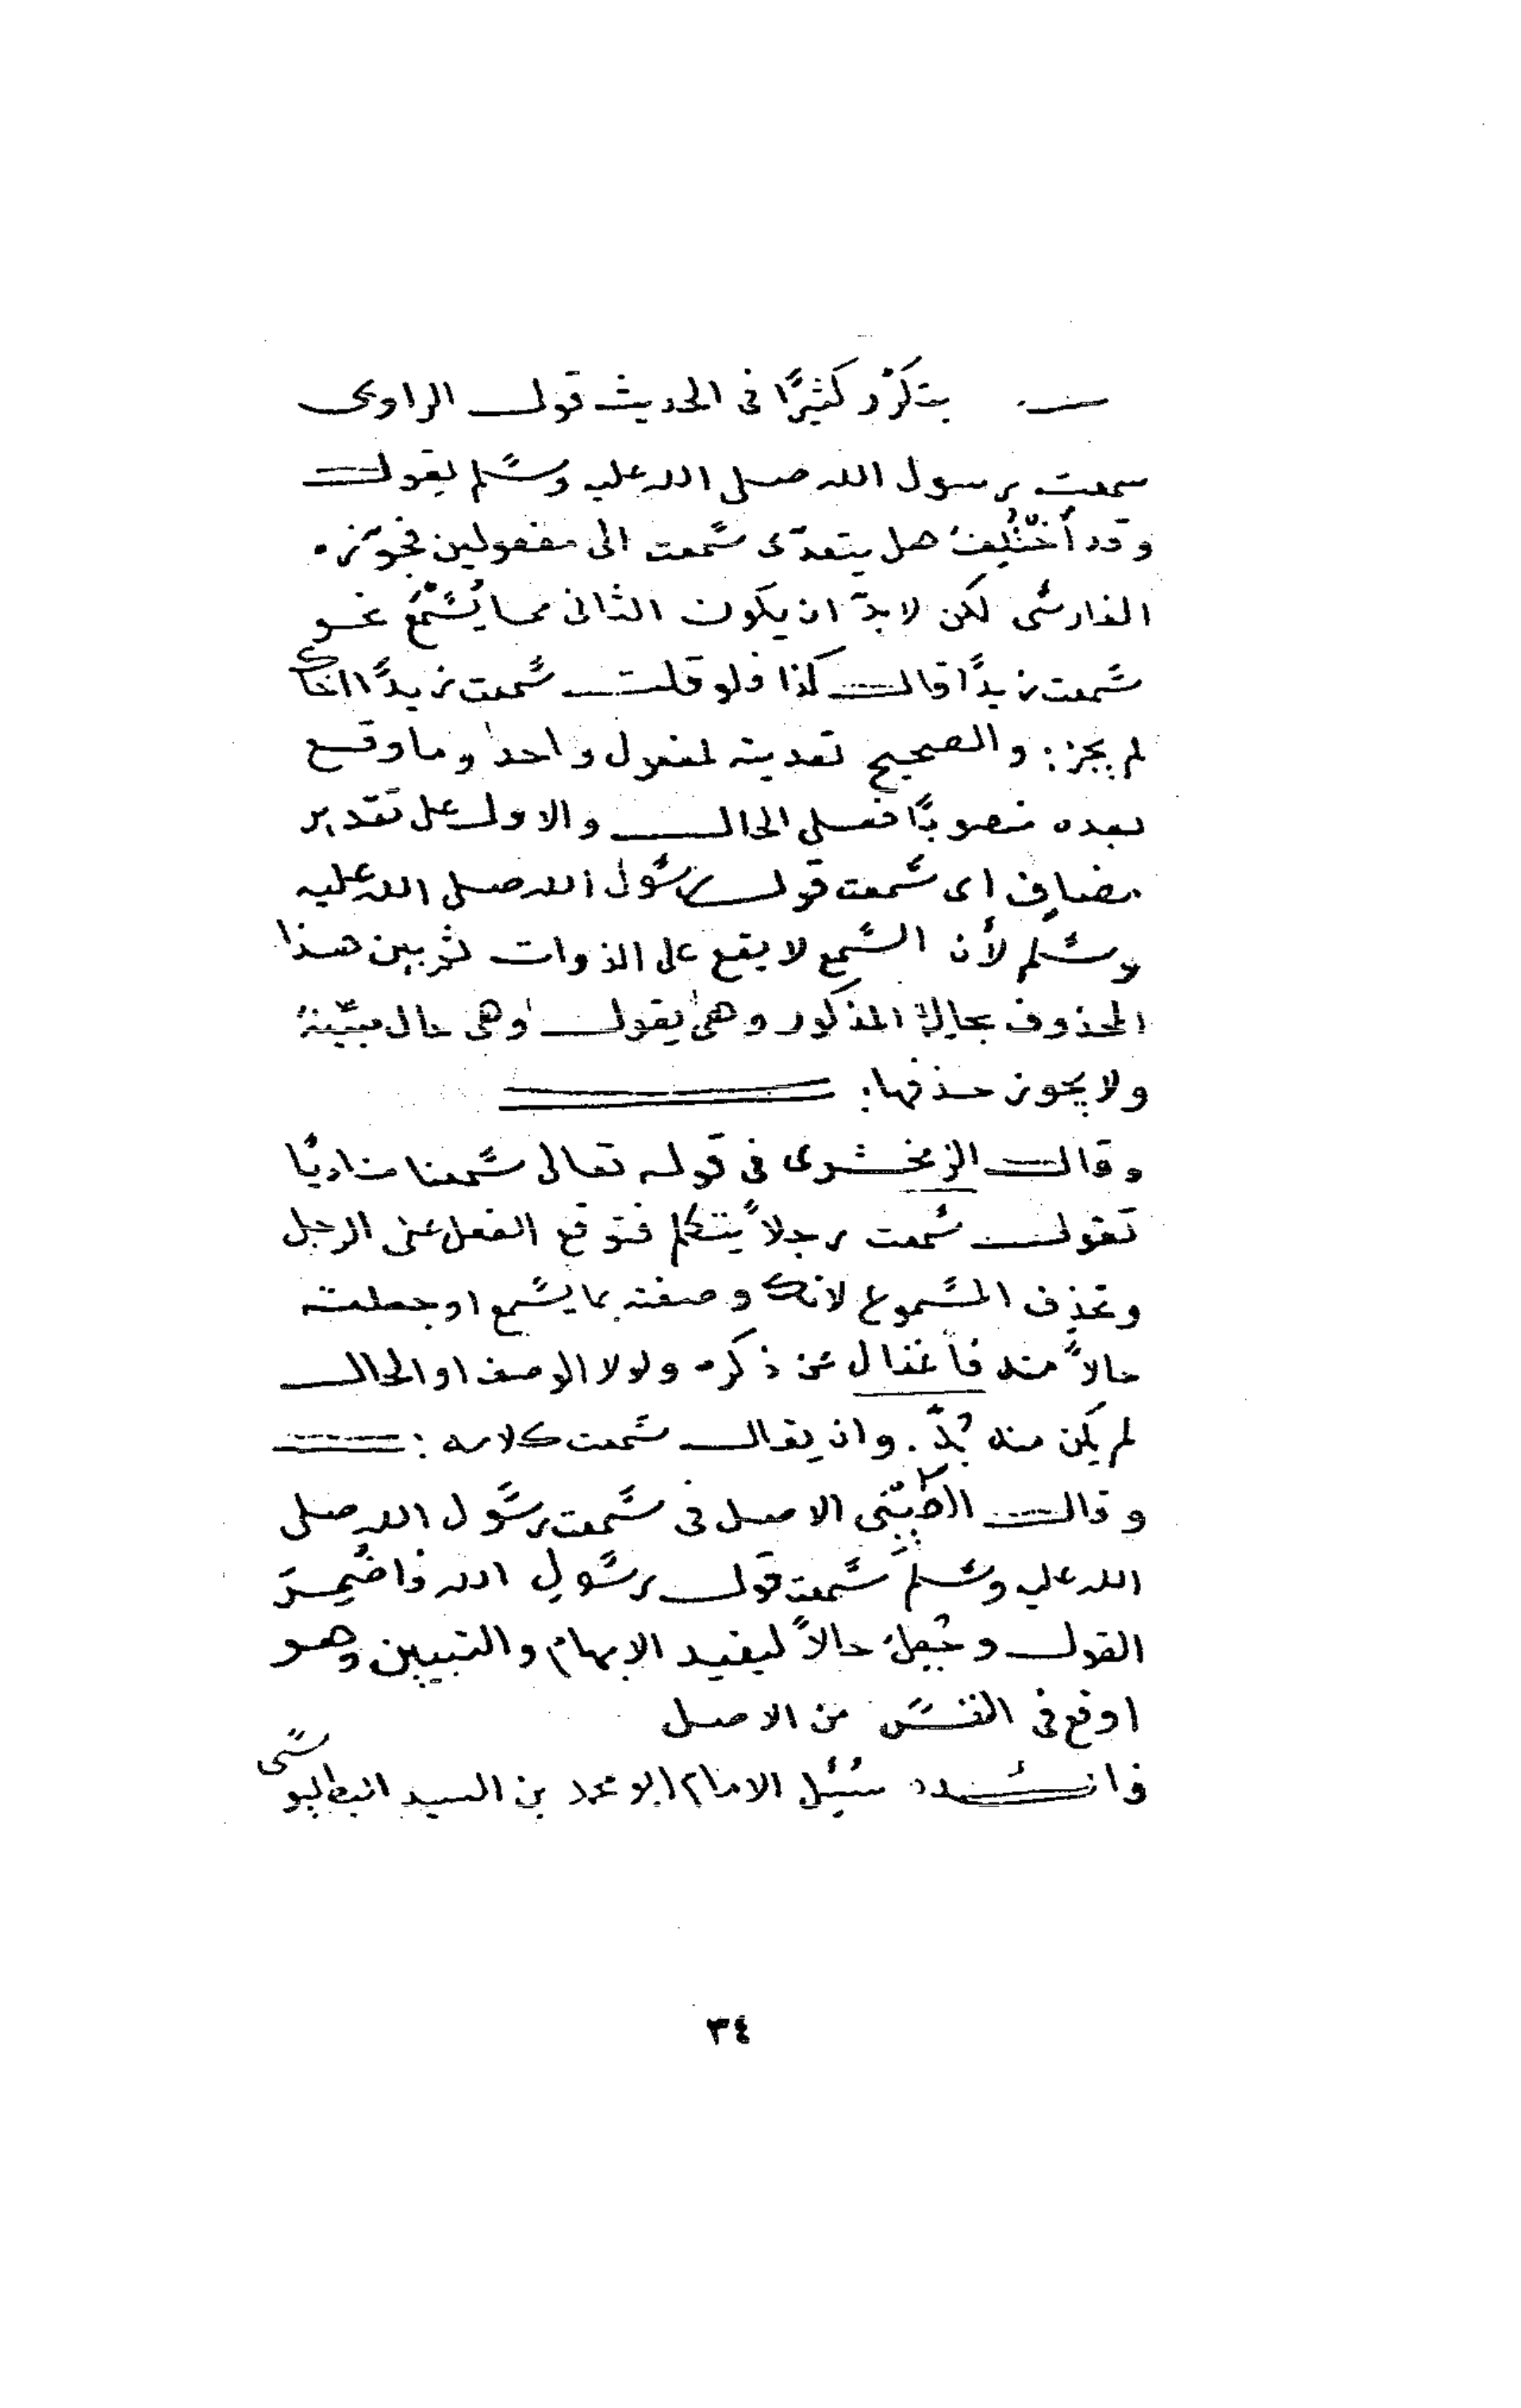 يتكرّر كثيرًا فى الحديث قول الراوى
سمعت رسول الله صلى الله عليه وسلم يقول
وقد أُختُلِفَ هل يتعدّى سمعت الى مفعولين فجوّزه
الفارسى لكن لا بدّ ان يكون الثانى مما يُسْمَعُ نحو
سمعت زيدًا قال كذا فلو قلت سمعت زيدًا اخاك
لم يجز: والصحيح تعديته لمفعول واحد وما وقع
بعده منصوبًا فعلى الحال والاول على تقدير
مضاف اى سمعت قول رسول الله صلى الله عليه
وسلم لأن السمع لا يقع على الذوات ثم بين هذا
المحذوف بحالِهِ المذكور وهى يقول وهى حال مبيّنة
ولا يجوز حذفها:
وقال الزمخشرى فى قوله تعالى سمعنا مناديًا
تقول سمعت رجلاً يتكلم فتوقع الفعل على الرجل
وتحذف المسموع لانك وصفته بما يسمع او جعلته
حالاً منه فأغناك عن ذكره ولولا الوصف او الحال
لم يكن منه بُدّ. وان يقال سمعت كلامه:
وقال الطِّيبِّى الاصل فى سمعت رسول الله صلى
الله عليه وسلم سمعت قول رسولِ الله فاضْمِرَ
القول وجُعِلَ حالاً ليفيد الابهام والتبيين وهو
اوقع فى النفس من الاصل
فائده سُئِل الامام ابو محمد بن السيد البطليوسى
٣٤